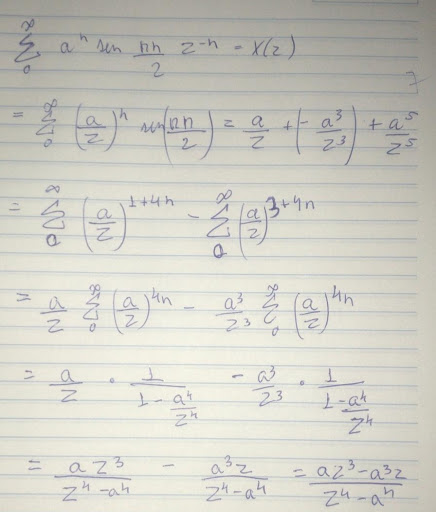 ∞ ∑ 0 a^n sen πn/2 z^-n = X(z)
= ∞ ∑ 0 (a/z)^n sen(πn/2) = a/z + (-a^3/z^3) + a^5/z^5
= ∞ ∑ 0 (a/z)^1+4n - ∞ ∑ 0 (a/z)^3+4n
= a/z ∞ ∑ 0 (a/z)^4n - a^3/z^3 ∞ ∑ 0 (a/z)^4n
= a/z · 1/(1 - a^4/z^4) - a^3/z^3 · 1/(1 - a^4/z^4)
= az^3/(z^4 - a^4) - a^3z/(z^4 - a^4) = (az^3 - a^3z)/(z^4 - a^4)